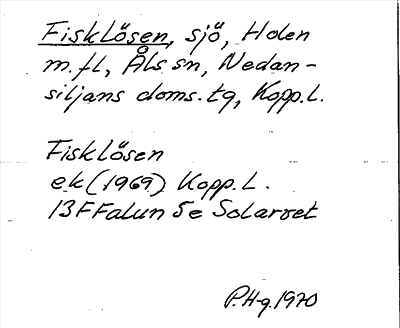 Fisklösen, sjö, Holen
m.fl, Åls sn, Nedan-
siljans doms.tg, Kopp.l.
Fisklösen
ek (1969) Kopp.l.
13F Falun 5e Solarvet
P.H-g. 1970